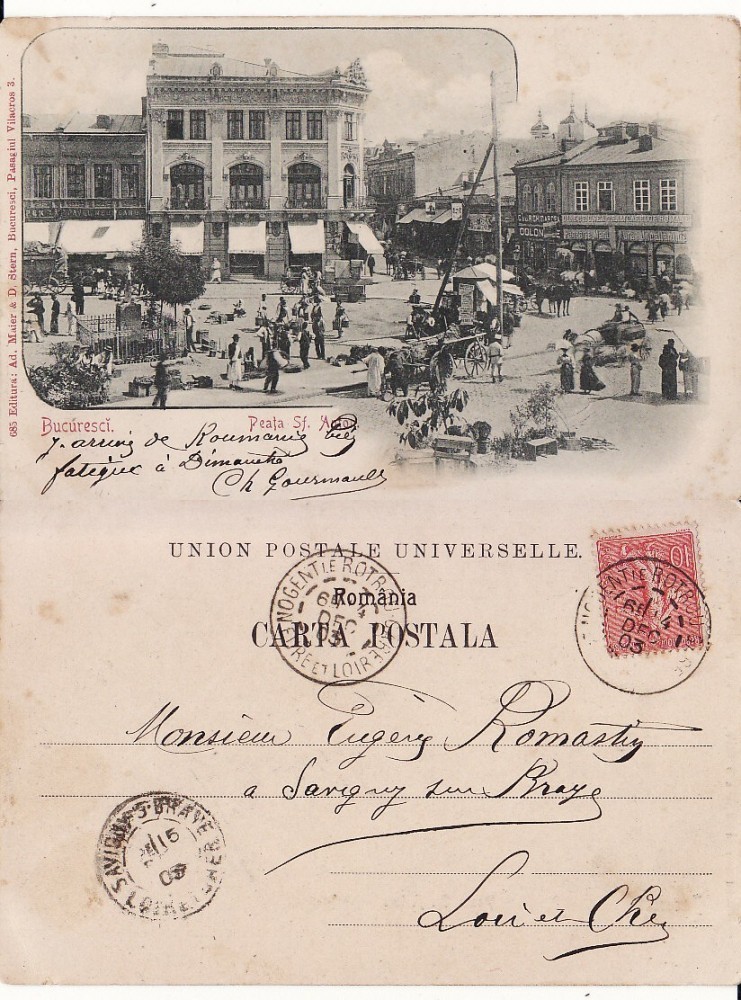 685 Editura: Ad. Maier & D. Stern, Bucuresci, Pasagiul Vilacros 3.
Bucurescĭ. Peaţa Sf. Anton.
J. arriv de Roumanie bien
fatigué à Dimanche
Ch Gourmault
UNION POSTALE UNIVERSELLE.
România
CARTA POSTALA
NOGENT LE ROTROU
6E /4
DEC
03
EURE ET LOIR
10
NOGENT LE ROTROU
6E /4
DEC
03
Monsieur Eugène
à Savigny sur Braye
SAVIGNY-S-BRAYE
15
03
LOIR-ET-CHER
Loir et Cher